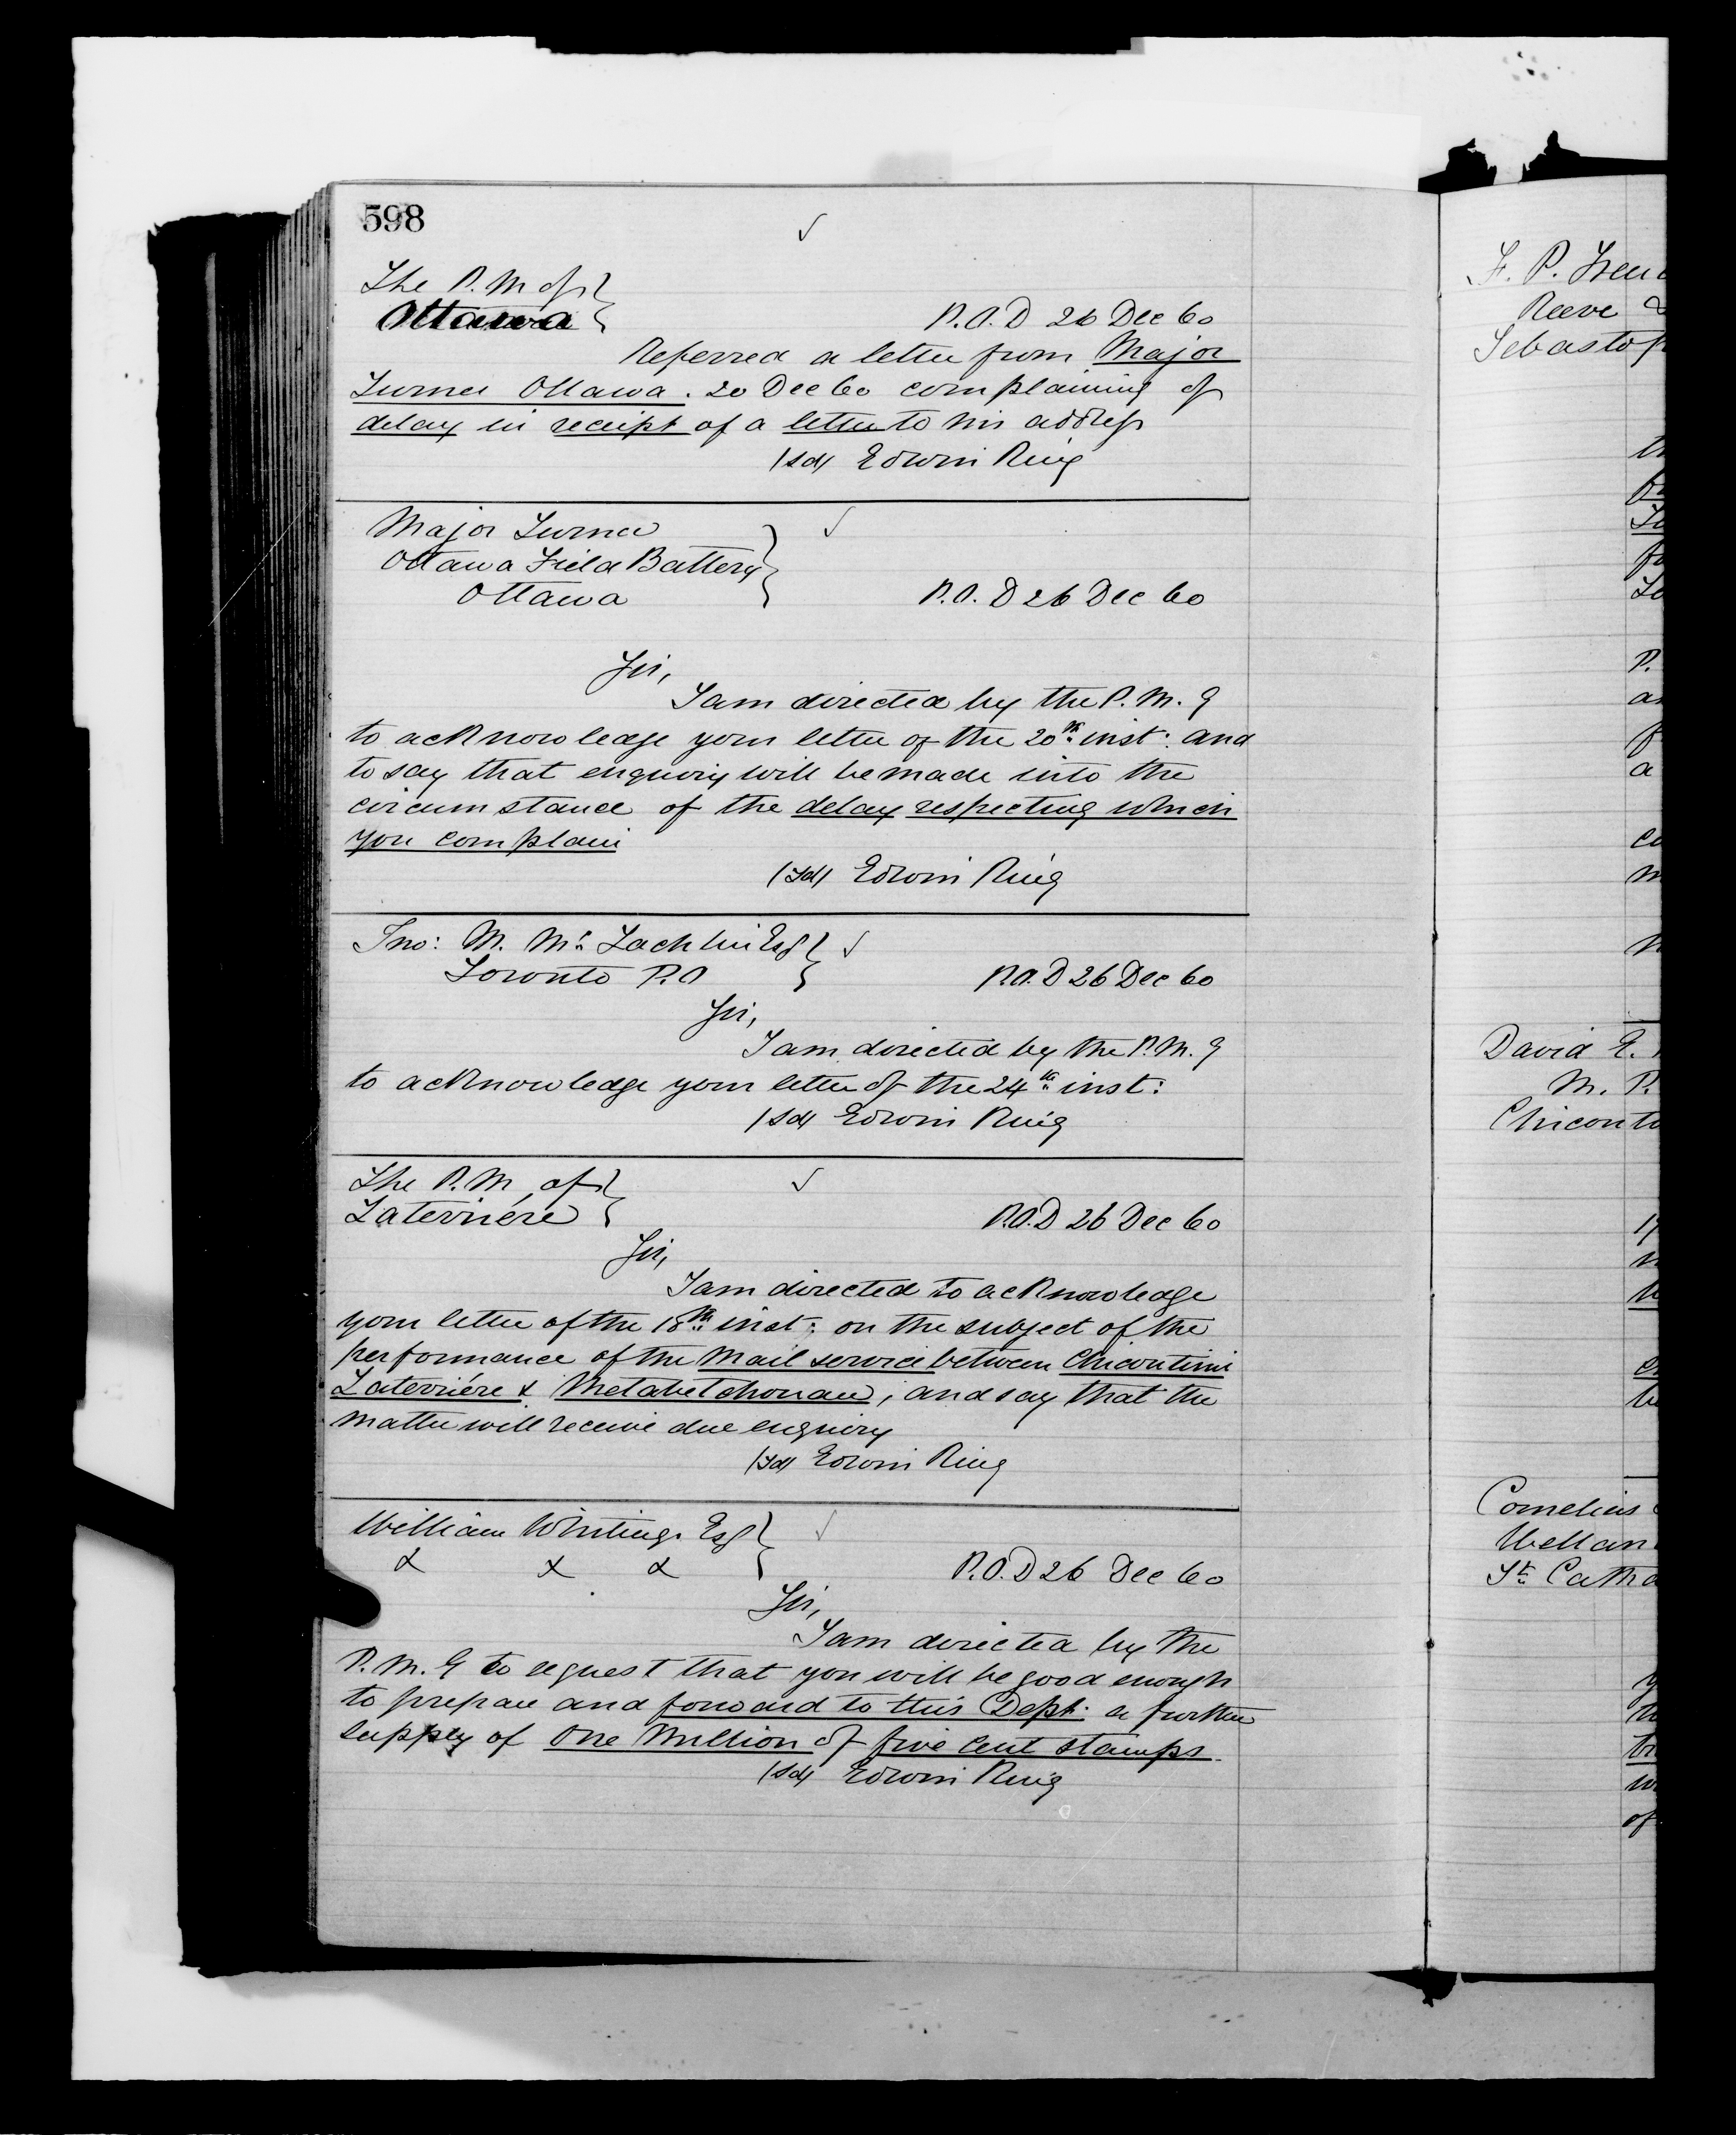 598
The P. M of
Ottawa
P.O.D 26 Dec 60
Referred a letter from Major
Turner Ottawa. 20 Dec 60 complaining of
delay in receipt of a letter to his address
(sd) Edwin King
Major Turner
Ottawa Field Battery
Ottawa
P.O.D 26 Dec 60
Sir,
I am directed by the P.M.G
to acknowledge your letter of the 20th inst: and
to say that enquiry will be made into the
circumstance of the delay respecting which
you complain
(sd) Edwin King
Jno: M. Mc Lachlin Esq
Toronto P.O
P.O.D 26 Dec 60
Sir,
I am directed by the P.M.G
to acknowledge your letter of the 24th inst:
(sd) Edwin King
The P.M. of
Laterriére
P.O.D 26 Dec 60
Sir,
I am directed to acknowledge
your letter of the 18th inst: on the subject of the
performance of the Mail service between Chicoutimi
Laterriére & Metabetchouan, and say that the
matter will receive due enquiry
(sd) Edwin King
William Whiting Esq
x x x
P.O.D 26 Dec 60
Sir,
I am directed by the
P.M.G to request that you will be good enough
to prepare and forward to this Dept. a further
supply of One Million of five cent stamps.
(sd) Edwin King
F. P.
Reeve &
Sebastop
David E.
M. P.
Chicouti
Cornelius
Wellan
St. Catha